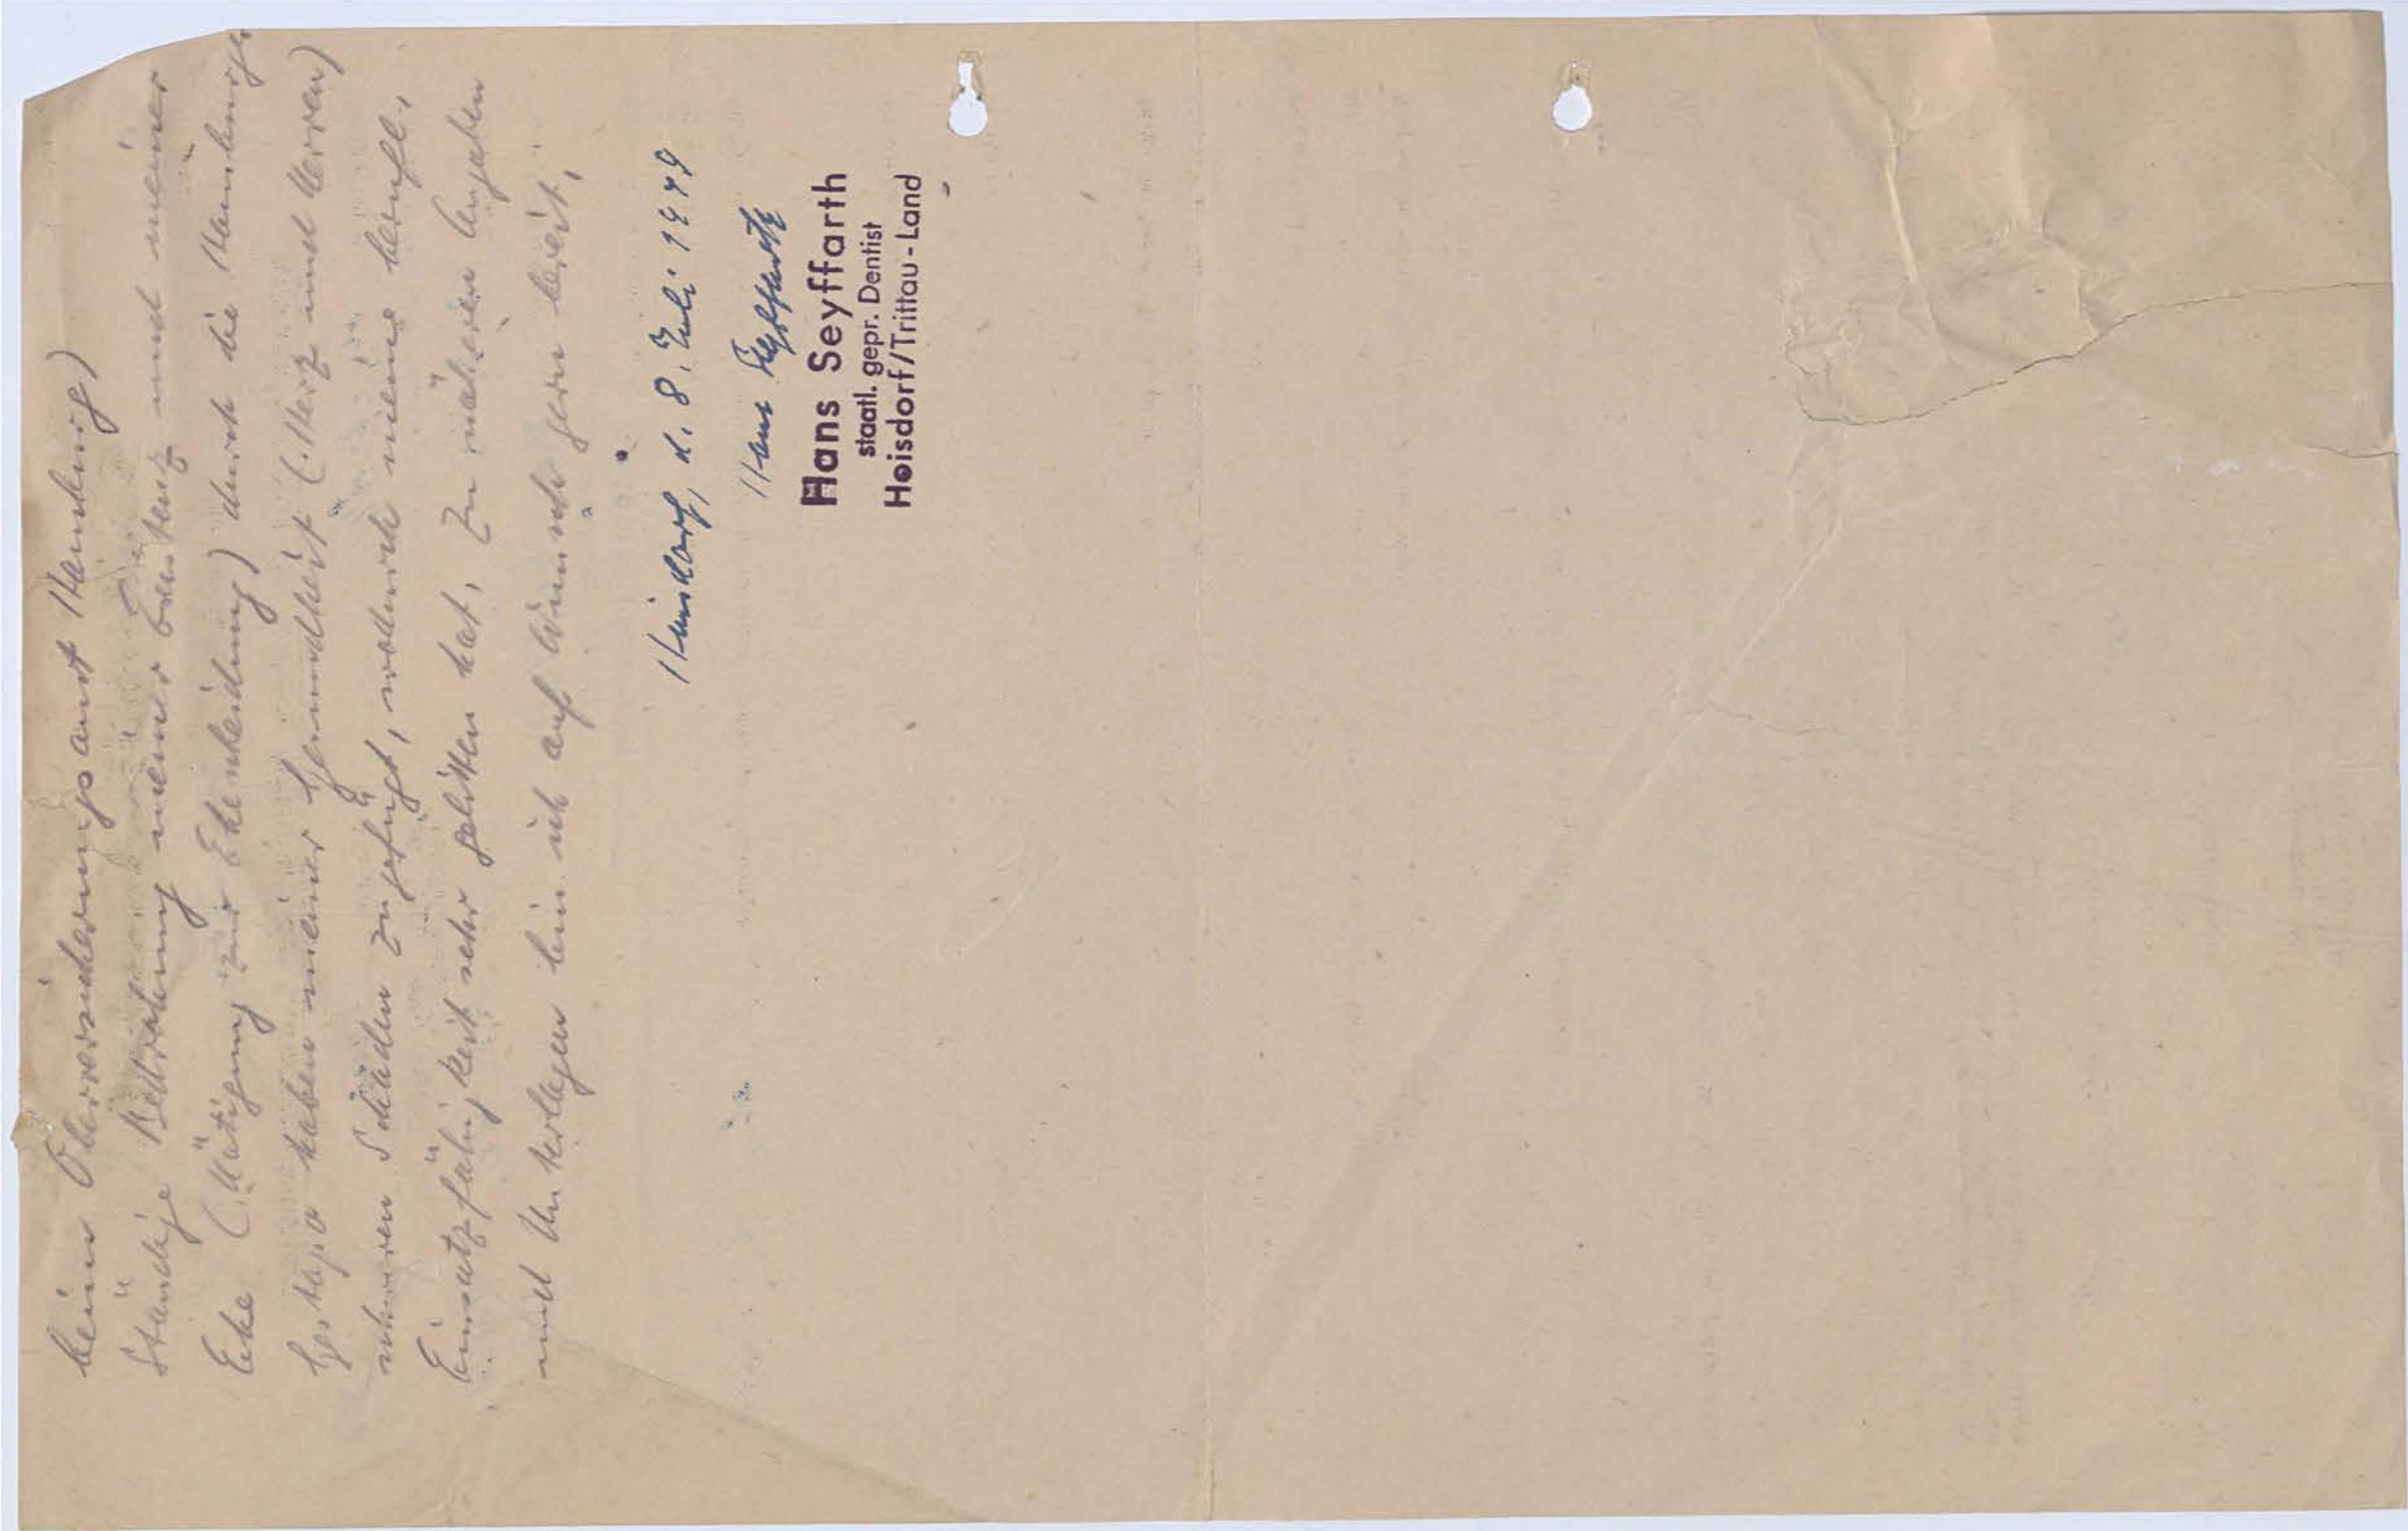 beim Oberversicherungsamt Hamburg)
Ständige Bedrohung meiner Existenz und meiner
Ehe (Nötigung zur Ehescheidung) durch die Hamburger
Gestapo haben meiner Gesundheit (Herz und Nerven)
schweren Schaden zugefügt, wodurch meine berufl.
Einsatzfähigkeit sehr gelitten hat. Zu näheren Angaben
und Unterlagen bin ich auf Wunsch gern bereit.
d. 8. Juli 1949
Hans Seyffarth
Hans Seyffarth
staatl. gepr. Dentist
Hoisdorf/Trittau-Land